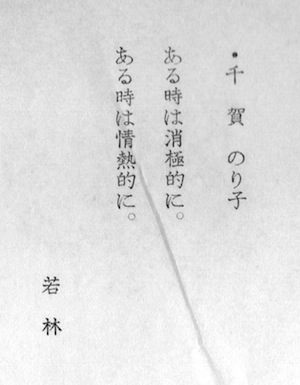 ・千賀 のり子
ある時は消極的に。
ある時は情熱的に。
若林